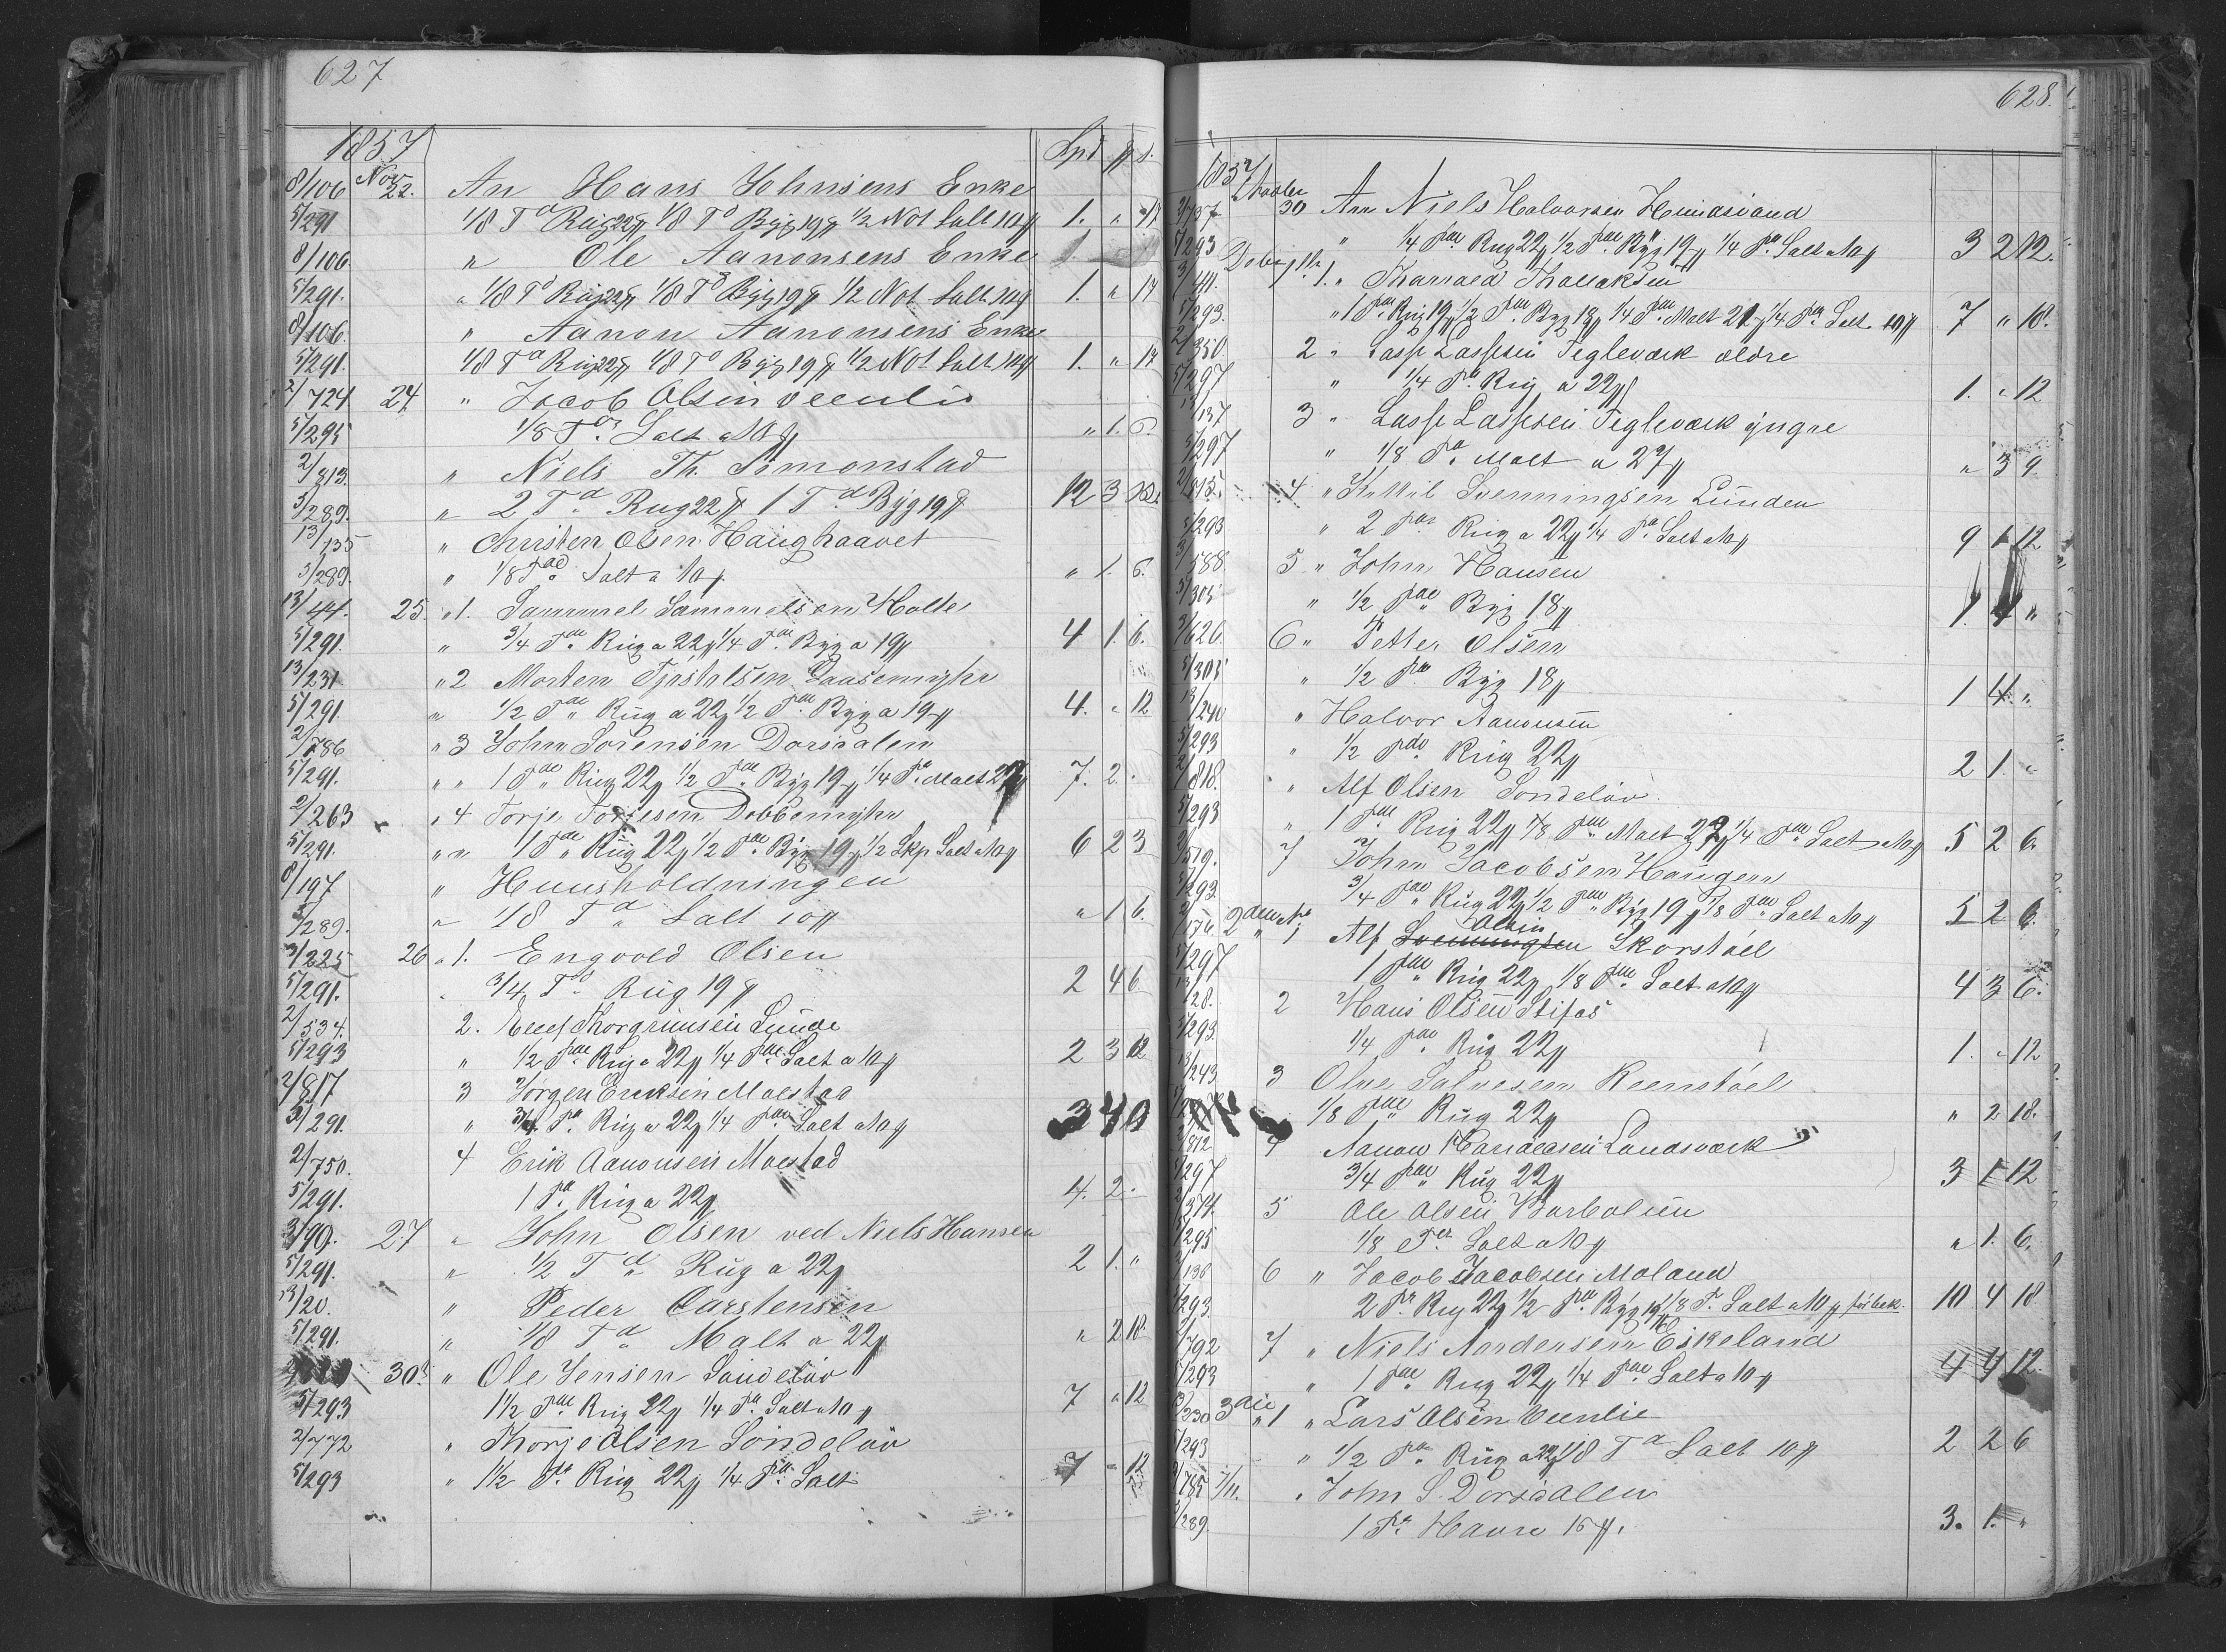 627
1857 Spd ẞ s.
8/106 Nov 22. An Hans Johnsens Enke
5/291 1/8 Td Rüg 22 ẞ 1/8 Td Byg 19 ẞ 1/2 Not Salt 10 ẞ 1. " 17
8/106 " Ole Aanonsens Enke
5/291. " 1/8 Td Rüg 22 ẞ 1/8 Td Byg 19 ẞ 1/2 Not Salt 10 ẞ 1. " 17
8/106. " Aanon Aanonsens Enke
5/291. 1/8 Td Rüg 22 ẞ 1/8 Td Byg 19 ẞ 1/2 Not Salt 10 ẞ 1. " 17
2/724 24 " Jacob Olsen Veenlie
5/295 1/8 Tde Salt a 10 ẞ " 1. 6.
2/813. " Niels Th. Simonstad
5/289. " 2 Td Rug 22 ẞ 1 Td Byg 19 ẞ 12 3 12.
13/135 " Christen Olsen Haüghaavet
3/289. " 1/8 Tde Salt a 10 ẞ " 1. 6.
13/44. 25. " 1. Sammuel Sammuelsen Holte
5/291. " 3/4 Tde Rüg a 22 ẞ 1/4 Tde Byg a 19 ẞ 4 1. 6.
13/231 " 2 Morten Tjøstelsen Gaasemyhr
5/291. " 1/2 Tde Rüg a 22 ẞ 1/2 Tde Byg a 19 ẞ 4. " 12
2/786 " 3 John Sörensen Dorsdalen
5/291. " " 1 Tde Rüg 22 ẞ 1/2 Tde Byg 19 ẞ 1/4 Td Malt 27 ẞ 7. 2.
2/263 " 4 Torje Torjesen Dobbemyhr
5/291. " " 1 Tde Rüg 22 ẞ 1/2 Tde Byg 19 ẞ 1/2 Skp Salt a 10 ẞ 6 2 3
8/197 " Huusholdningen
5/289. " 1/8 Td Salt 10 ẞ " 1 6.
3/225 26 " 1. Engvold Olsen
5/291. 3/4 Td Rüg 19 ẞ 2 4 6
2/534. 2. Ellef Thorgrimsen Lunde
5/293 " 1/2 Tde Rüg a 22 ẞ 1/4 Tde Salt a 10 ẞ 2 3 12
2/817 3 Jörgen Eriksen Moestad
5/291. " 3/4 Td Rüg a 22 ẞ 1/4 Tde Salt a 10 ẞ 3 4 0
2/750. 4 Erik Aanonsen Moestad
5/291. 1 Td Rüg a 22 ẞ 4. 2.
3/90. 27 " John Olsen ved Niels Hansen
5/291. " 1/2 Td Rüg a 22 ẞ 2 1. "
13/20. " Peder Carstensen
5/291. " 1/8 Td Malt a 22 ẞ " 2 18
30 " Ole Jensen Söndelöv
5/293 1 1/2 Tde Rüg 22 ẞ 1/4 Td Salt a 10 ẞ 7 " 12
2/772 " Thorje Olsen Söndelöv
5/293 " 1 1/2 Td Rüg 22 ẞ 1/4 Td Salt 7 " 12
628.
1857
30 An Niels Halvorsen
5/293 " 1/4 Tde Rug 22 ẞ 1/2 Tde Byg 19 ẞ 1/4 Td Salt a 10 ẞ 3 2 12.
1. " Tharald Thollaksen
5/293. " 1 Tde Rüg 19 ẞ 1/2 Tde Byg 18 ẞ 1/4 Tde Malt 21 ẞ 1/4 Td Salt 10 ẞ 7 " 18.
2/350 2 " Lasse Lassesen Tegleværk ældre
5/297 " 1/4 Td Rüg a 22 ẞ 1. " 12
137 3 " Lasse Lassesen Tegleværk yngre
5/297 " 1/8 Td Malt a 27 ẞ " 3 9
2/815. 4 " Kittil Svenningsen Lunden
5/293 " 2 Tde Rüg a 22 ẞ 1/4 Td Salt a 10 ẞ 9 1 12
3/588 5 " John Hansen
5/305 " 1/2 Tde Byg 18 ẞ 1. 4 "
2/626. 6 " Petter Olsen
5/305 " 1/2 Tde Byg 18 ẞ 1 4. "
13/240 " Halvor Aanonsen
5/293 " 1/2 Tde Rüg 22 ẞ 2 1. "
2/818. " Alf Olsen Söndelöv.
5/293 " 1 Tde Rüg 22 ẞ 1/8 Tde Malt 27 ẞ 1/4 Tde Salt a 10 ẞ 5 2 6.
2/519. 7 John Jacobsen Haugen
5/293 3/4 Tde Rüg 22 ẞ 1/2 Tde Byg 19 ẞ 1/8 Tde Salt a 10 ẞ 5 2 6.
176. 2den 1 Alf Svenningsen Olsen Skorstöel
5/297 1 Tde Rüg 22 ẞ 1/8 Tde Salt a 10 ẞ 4 3 6.
13/28. 2 Hans Olsen Stifos
5/293. 1/4 Tde Rüg 22 ẞ 1. " 12
13/243 3 Olve Salvesen Reenstöel
1/8 Tde Rüg 22 ẞ " 2 18.
2/812 4 Aanon Haraldsen Landsværk
5/297 3/4 Tde Rüg 22 ẞ 3 1 12
2/374. 5 Ole Olsen Barbolien
5/295 1/8 Tde Salt a 10 ẞ " 1. 6.
136 6 " Jacob Jacobsen Moland
5/293. 2 Tde Rüg 22 ẞ 1/2 Tde Byg 19 ẞ 1/8 T. Salt a 10 ẞ 10 4 18
2/792 7 " Niels Andersen Eikeland
5/293 " 1 Tde Rug 22 ẞ 1/4 Tde Salt a 10 ẞ 4 4 12.
230 3die " 1 " Lars Olsen Veenlie
5/293 " 1/2 Td Rüg a 22 ẞ 1/8 Td Salt 10 ẞ 2 2 6
785 7/11. " John S. Dorsdalen
5/289. 1 Td Havre 16 ẞ. 3. 1. "